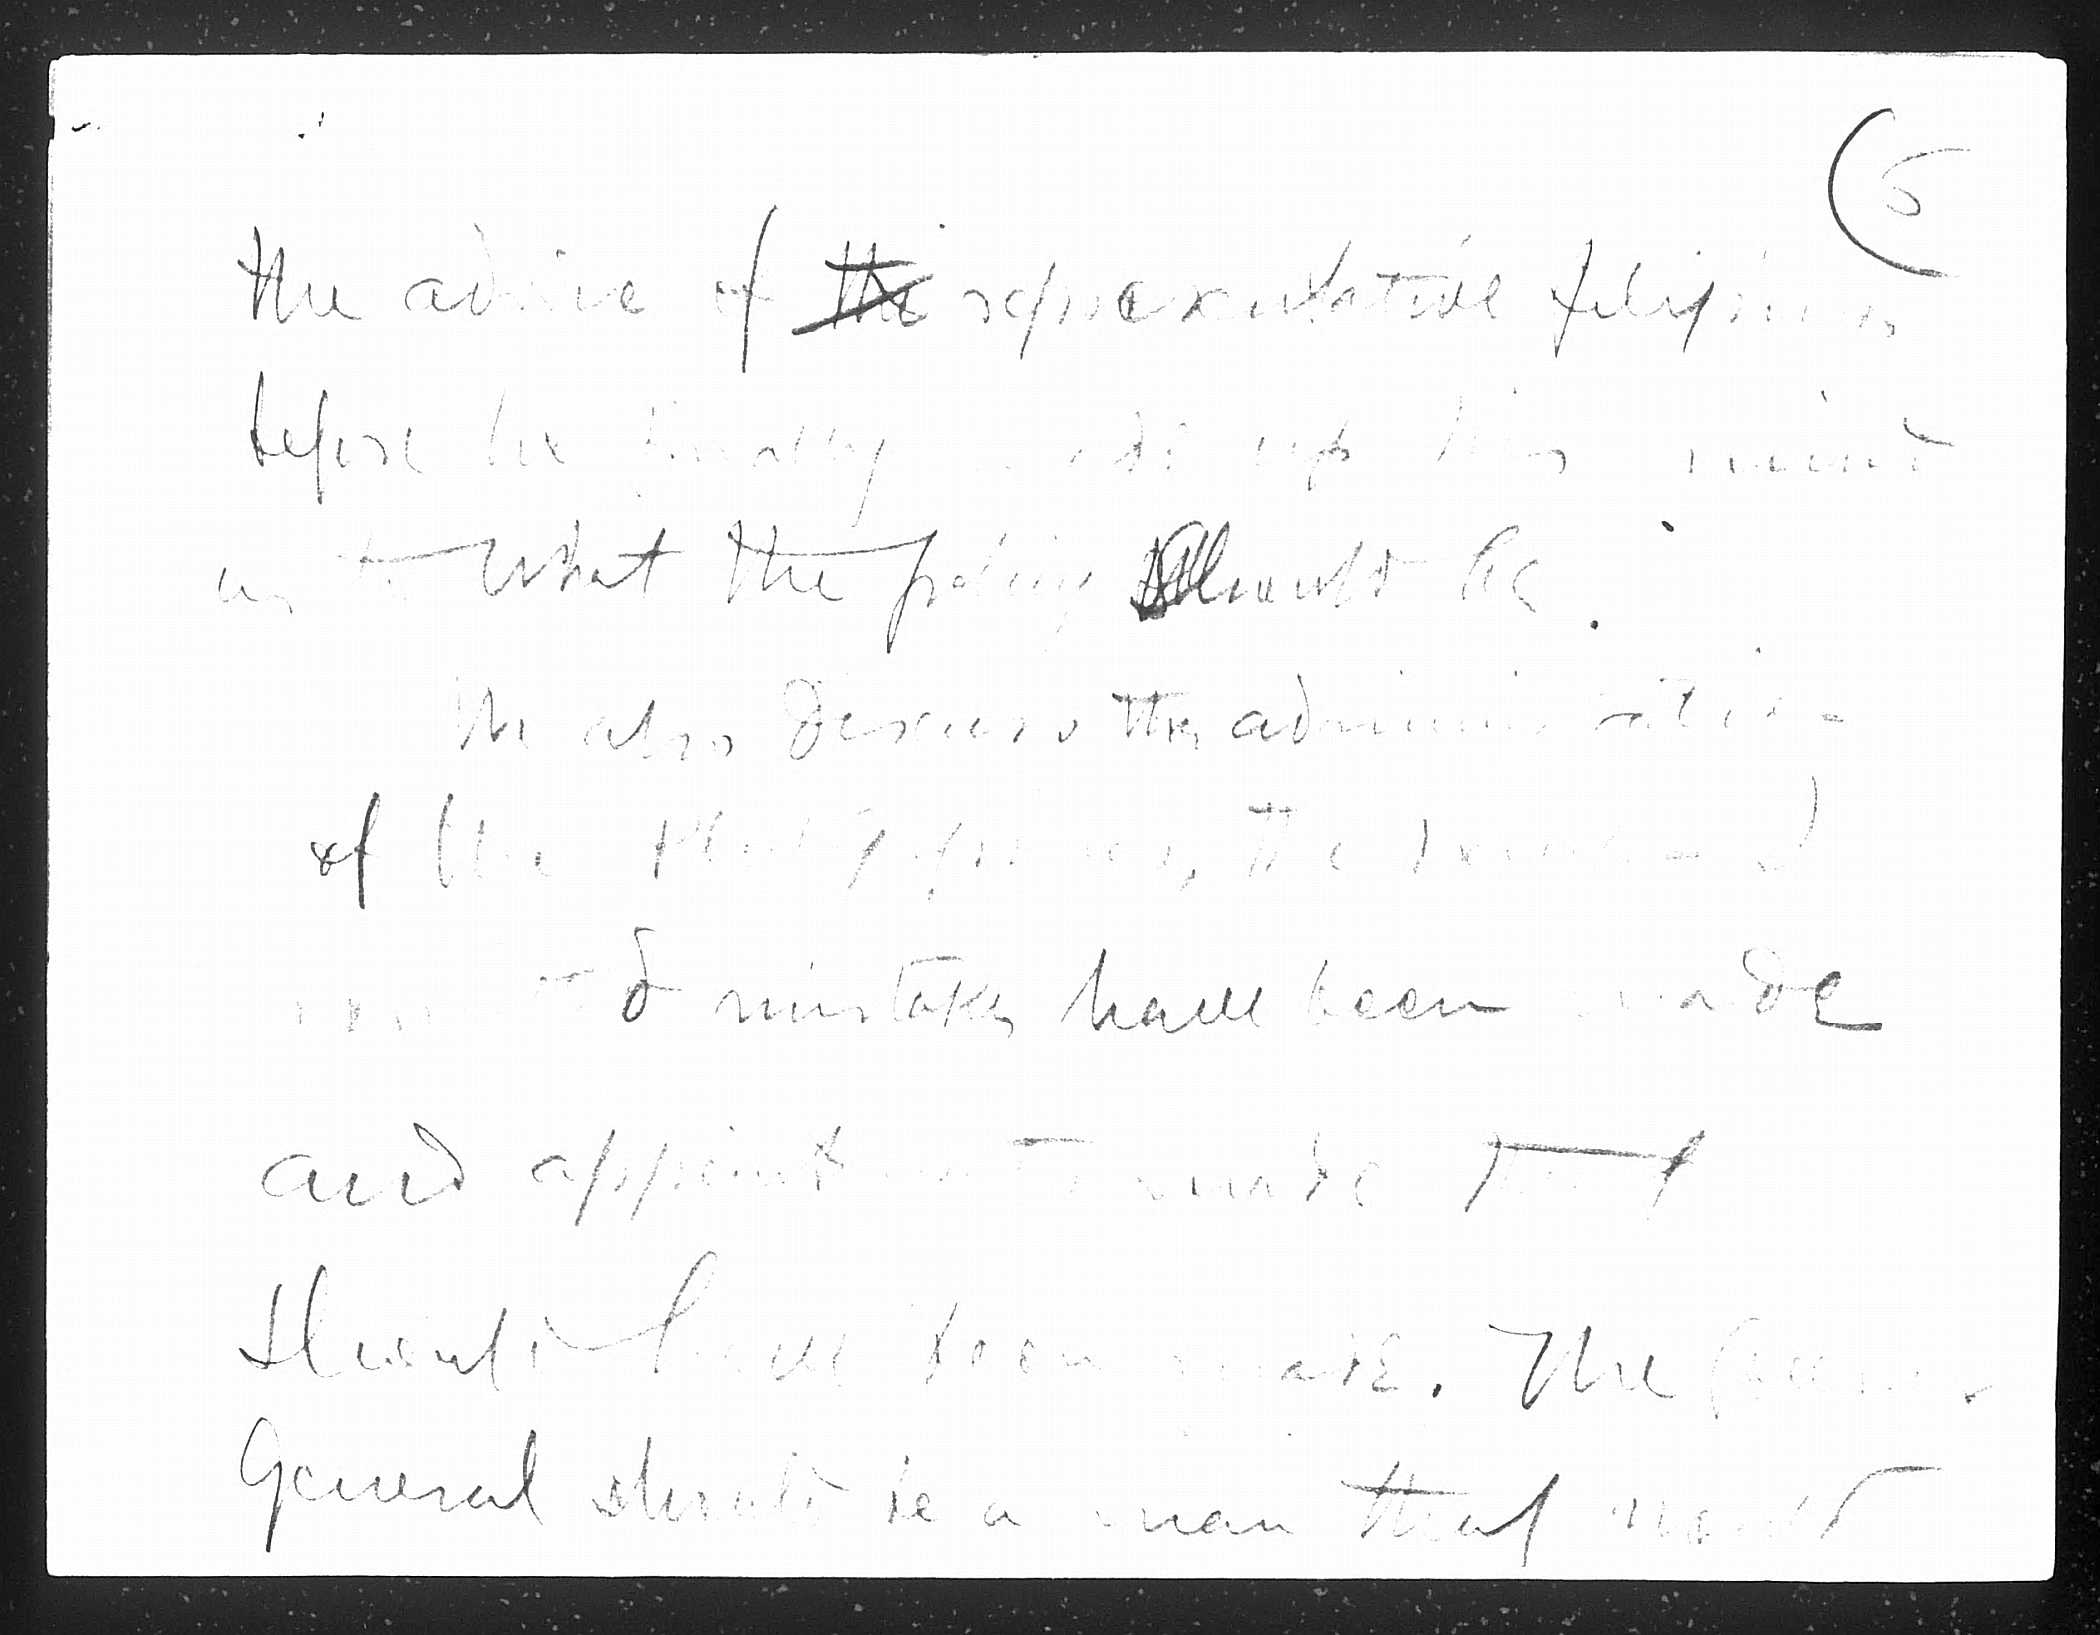 5
the advice of the representative filipinos
before he finally made up his mind
as to what the policy should be.
We also discuss the administration
of the Philippines, the
mistakes have been made
and appointment made that
should have been made. The
General should be a man that would